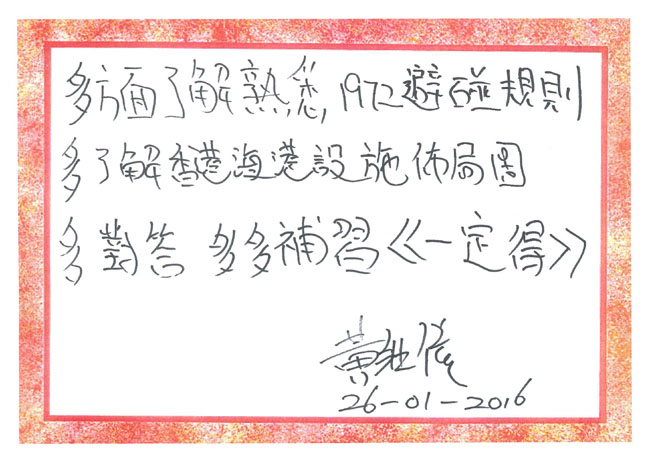 多方面了解熟悉, 1972避碰規則
多了解香港海港設施佈局圖
多對答 多多補習《一定得》
黃
26-01-2016